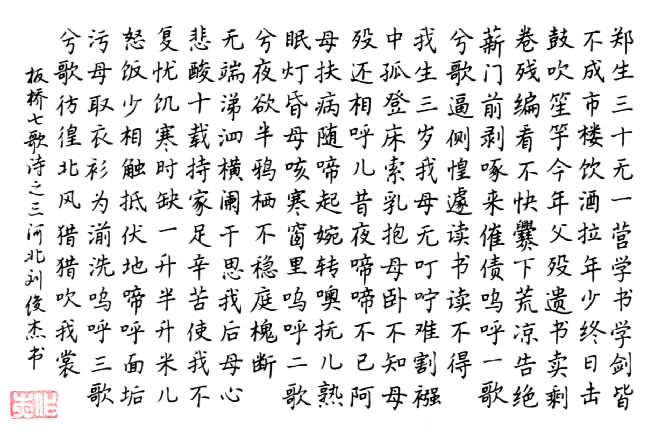 郑生三十无一营学书学剑皆
不成市楼饮酒拉年少终日击
鼓吹笙竽今年父殁遗书卖剩
卷残编看不快爨下荒凉告绝
薪门前剥啄来催债呜呼一歌
兮歌逼侧惶遽读书读不得
我生三岁我母无叮咛难割襁
中孤登床索乳抱母卧不知母
殁还相呼儿昔夜啼啼不已阿
母扶病随啼起婉转噢抚儿熟
眠灯昏母咳寒窗里呜呼二歌
兮夜欲半鸦栖不稳庭槐断
无端涕泗横阑干思我后母心
悲酸十载持家足辛苦使我不
复忧饥寒时缺一升半升米儿
怒饭少相触抵伏地啼呼面垢
污母取衣衫为湔洗呜呼三歌
兮歌彷徨北风猎猎吹我裳
板桥七歌诗之三河北刘俊杰书